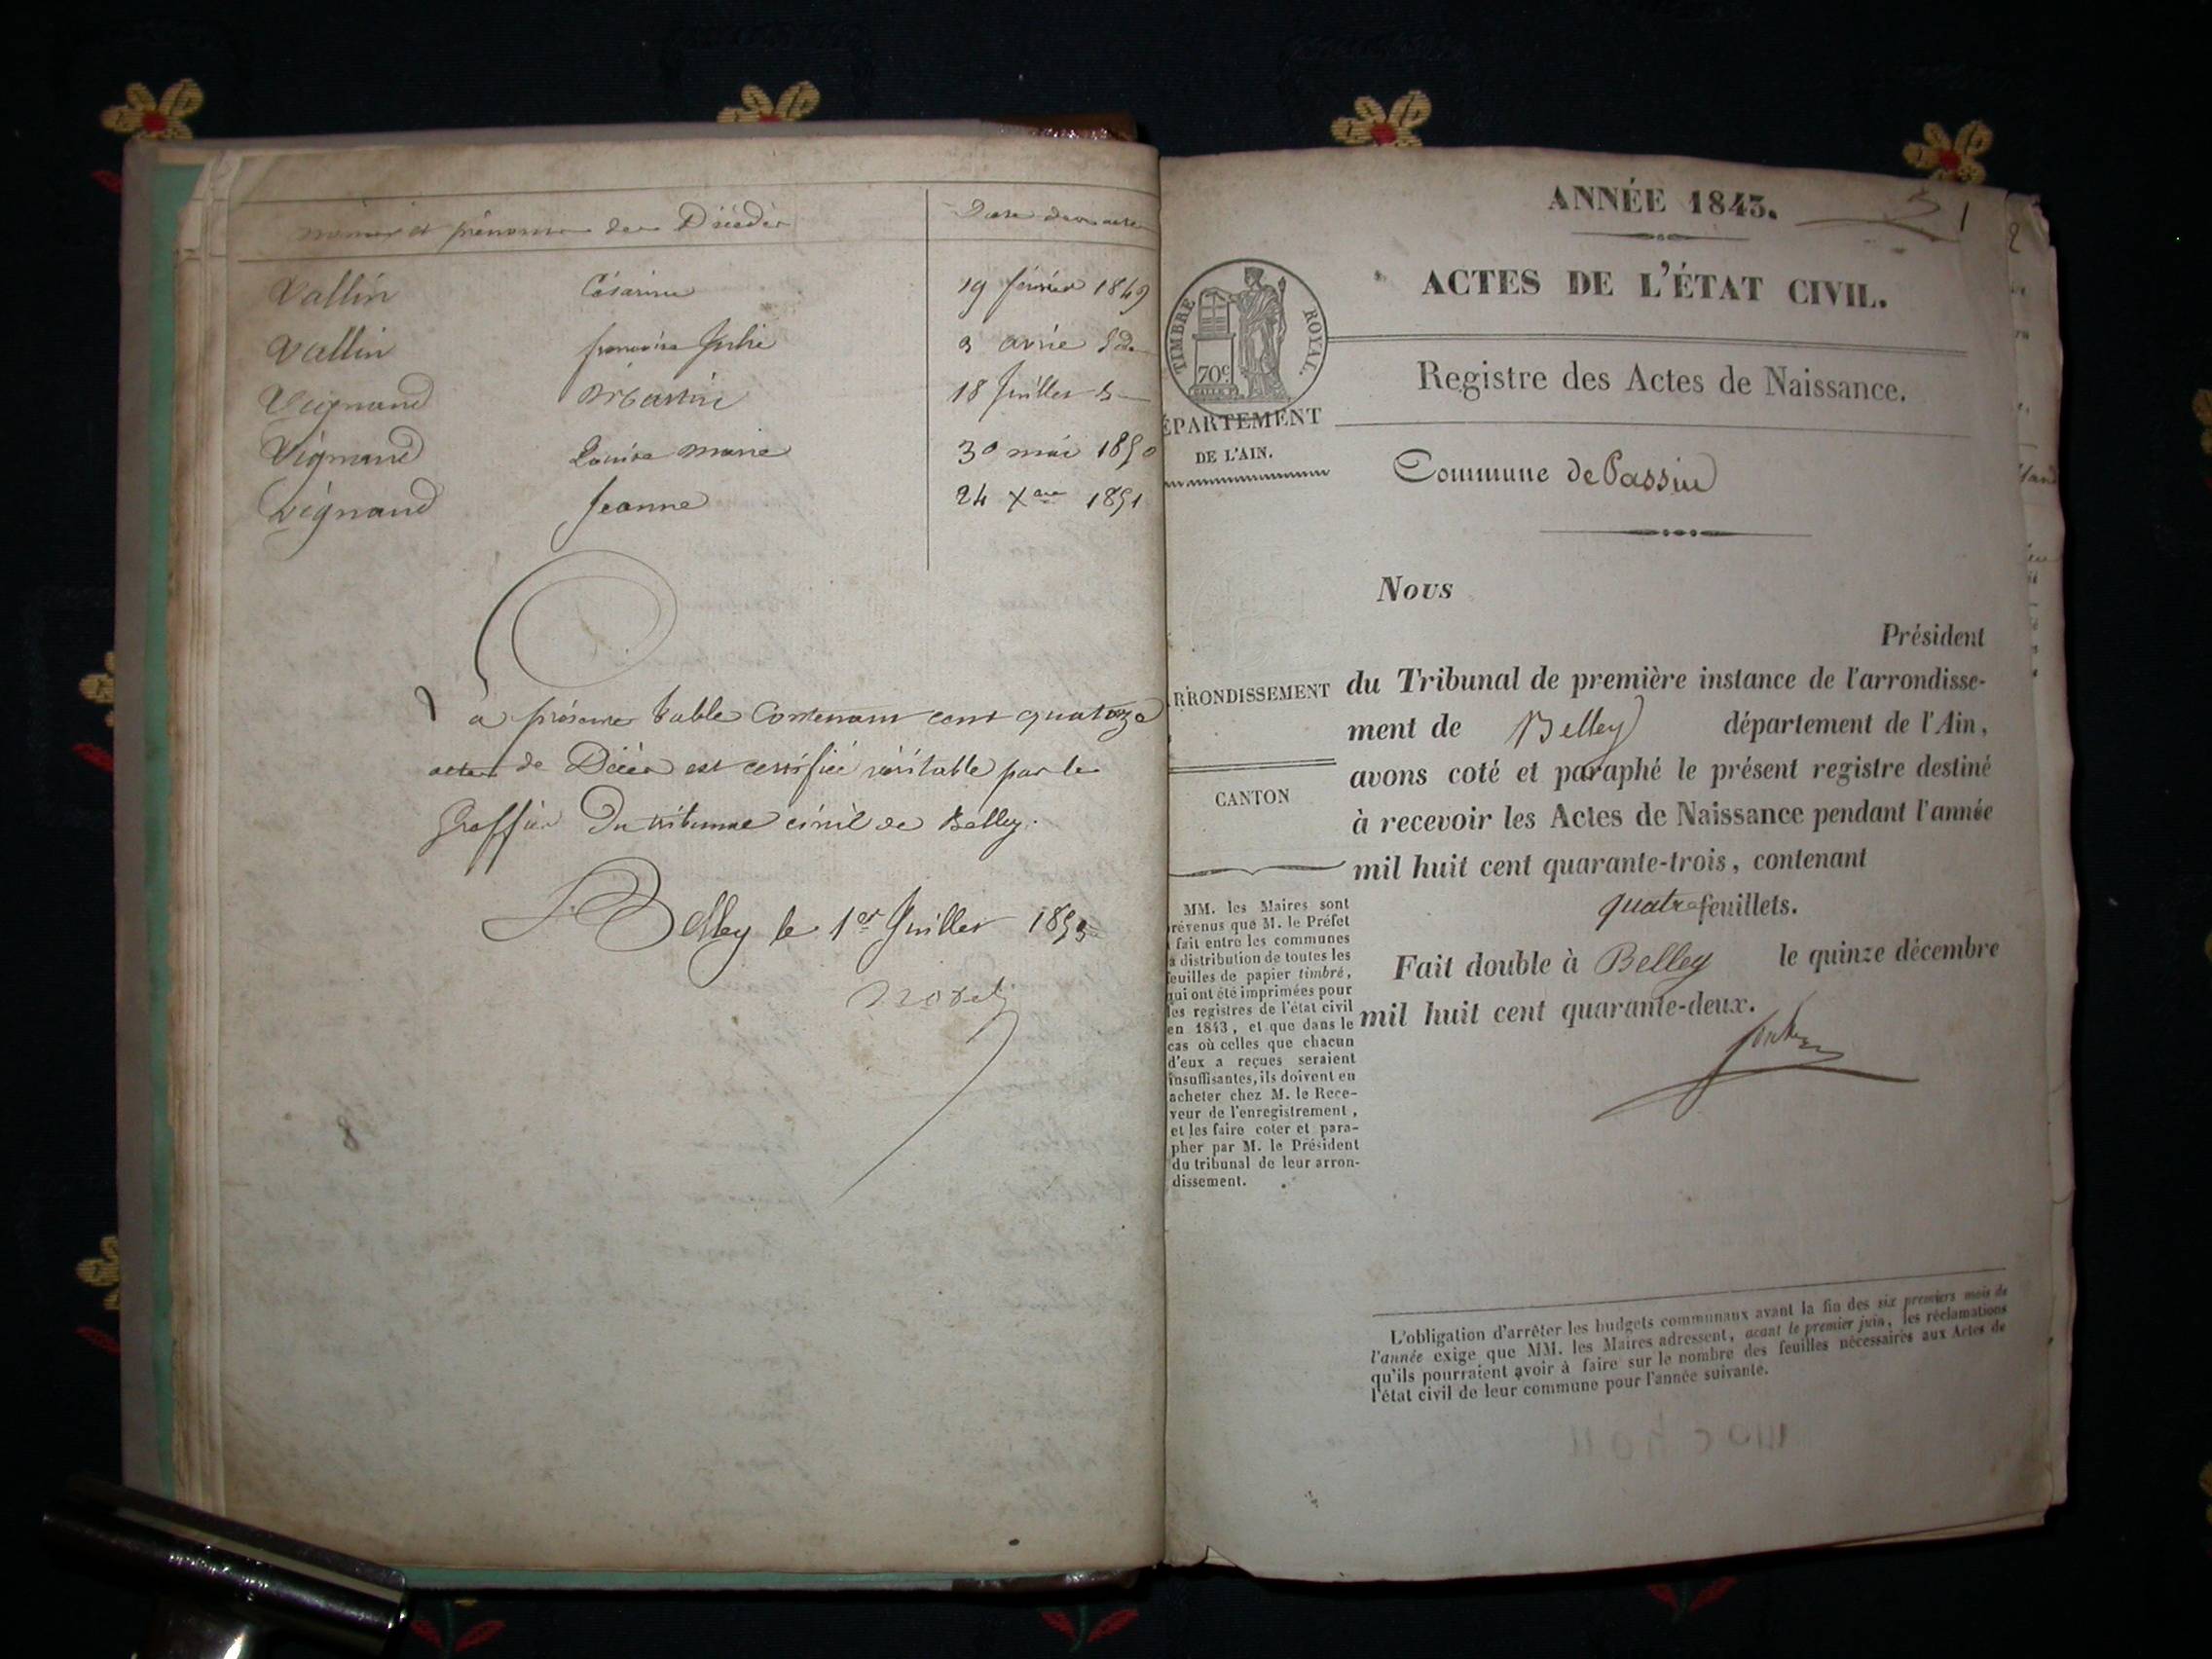 noms et prénoms des Décédés
Date des actes
Vallin Césarine 19 février 1849
Vallin françoise Julie 3 avril
Vignand Sébastien 18 Juillet
Vignand Louise Marie 30 mai 1850
Vignand Jeanne 24 Xbre 1851
La présente table contenant cent quatorze
actes de Décès est certifiée véritable par le
Greffier du tribunal civil de Belley.
Belley le 1er Juillet 1853
8
ANNÉE 1843.
1
ACTES DE L'ÉTAT CIVIL.
TIMBRE ROYAL.
70c
Registre des Actes de Naissance.
ÉPARTEMENT
DE L'AIN.
Commune de Passin
Nous
Président
RRONDISSEMENT
du Tribunal de première instance de l'arrondisse-
ment de Belley département de l'Ain,
avons coté et paraphé le présent registre destiné
CANTON
à recevoir les Actes de Naissance pendant l'année
mil huit cent quarante-trois, contenant
quatre feuillets.
Fait double à Belley le quinze décembre
mil huit cent quarante-deux.
MM. les Maires sont
révenus que M. le Préfet
fait entre les communes
a distribution de toutes les
feuilles de papier timbré,
qui ont été imprimées pour
les registres de l'état civil
en 1843, et que dans le
cas où celles que chacun
d'eux a reçues seraient
insuffisantes, ils doivent en
acheter chez M. le Rece-
veur de l'enregistrement,
et les faire coter et para-
pher par M. le Président
du tribunal de leur arron-
dissement.
L'obligation d'arrêter les budgets communaux avant la fin des six premiers mois de
l'année exige que MM. les Maires adressent, avant le premier juin, les réclamations
qu'ils pourraient avoir à faire sur le nombre des feuilles nécessaires aux Actes de
l'état civil de leur commune pour l'année suivante.